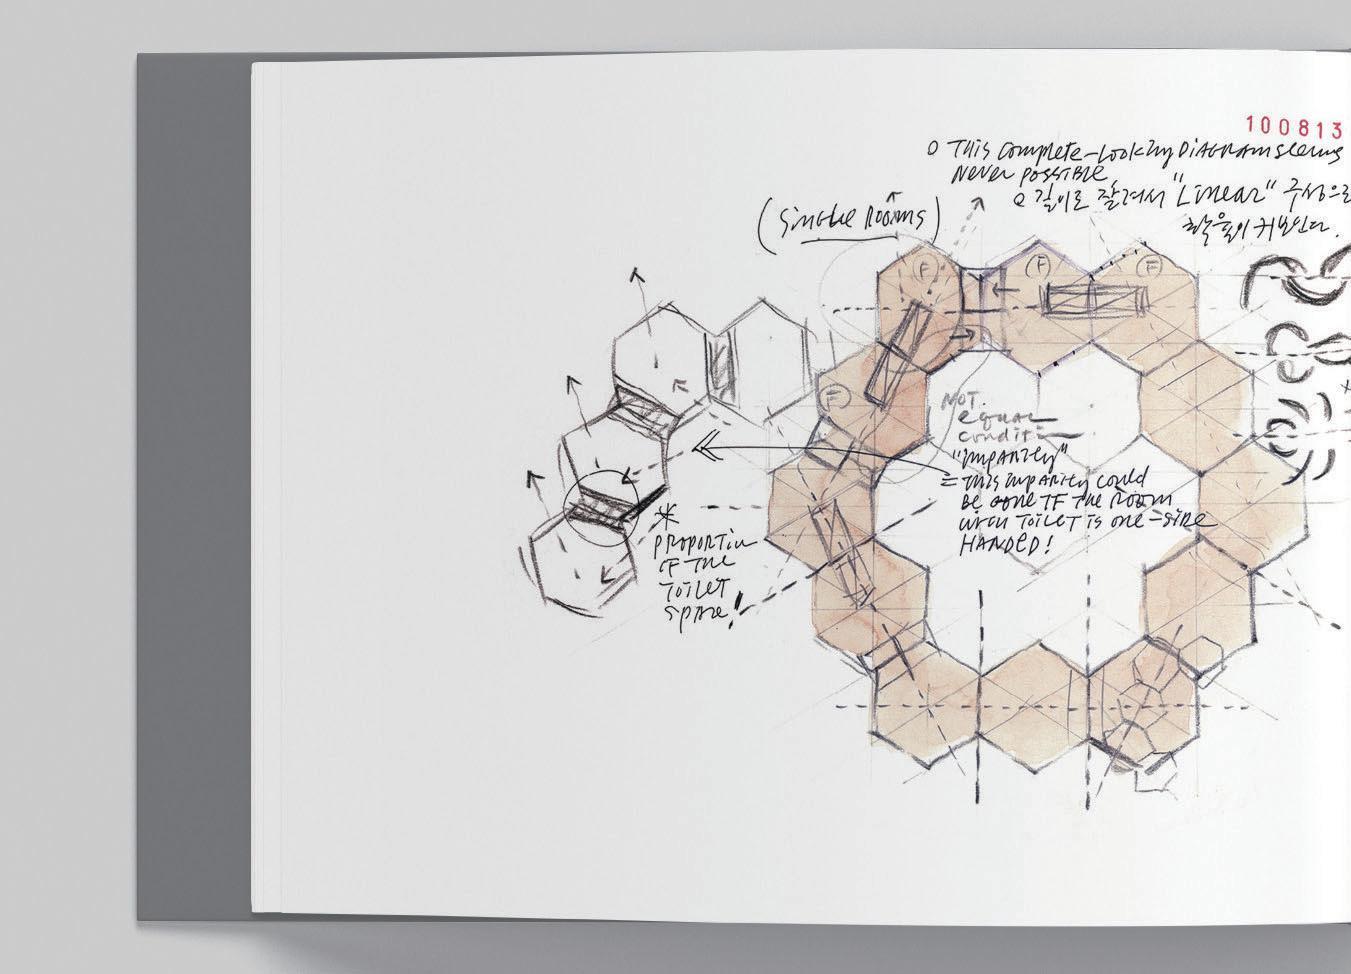 100813
o This complete-looking DIAGRAM seems
Never possible
"Linear" 구성으로
(single Rooms)
F
F
F
F
NOT.
equal
conditi
"imparity"
= This imparity could
BE gone IF the Room
with TOILET is one-side
HANDED!
*
proportion
OF THE
TOILET
space!